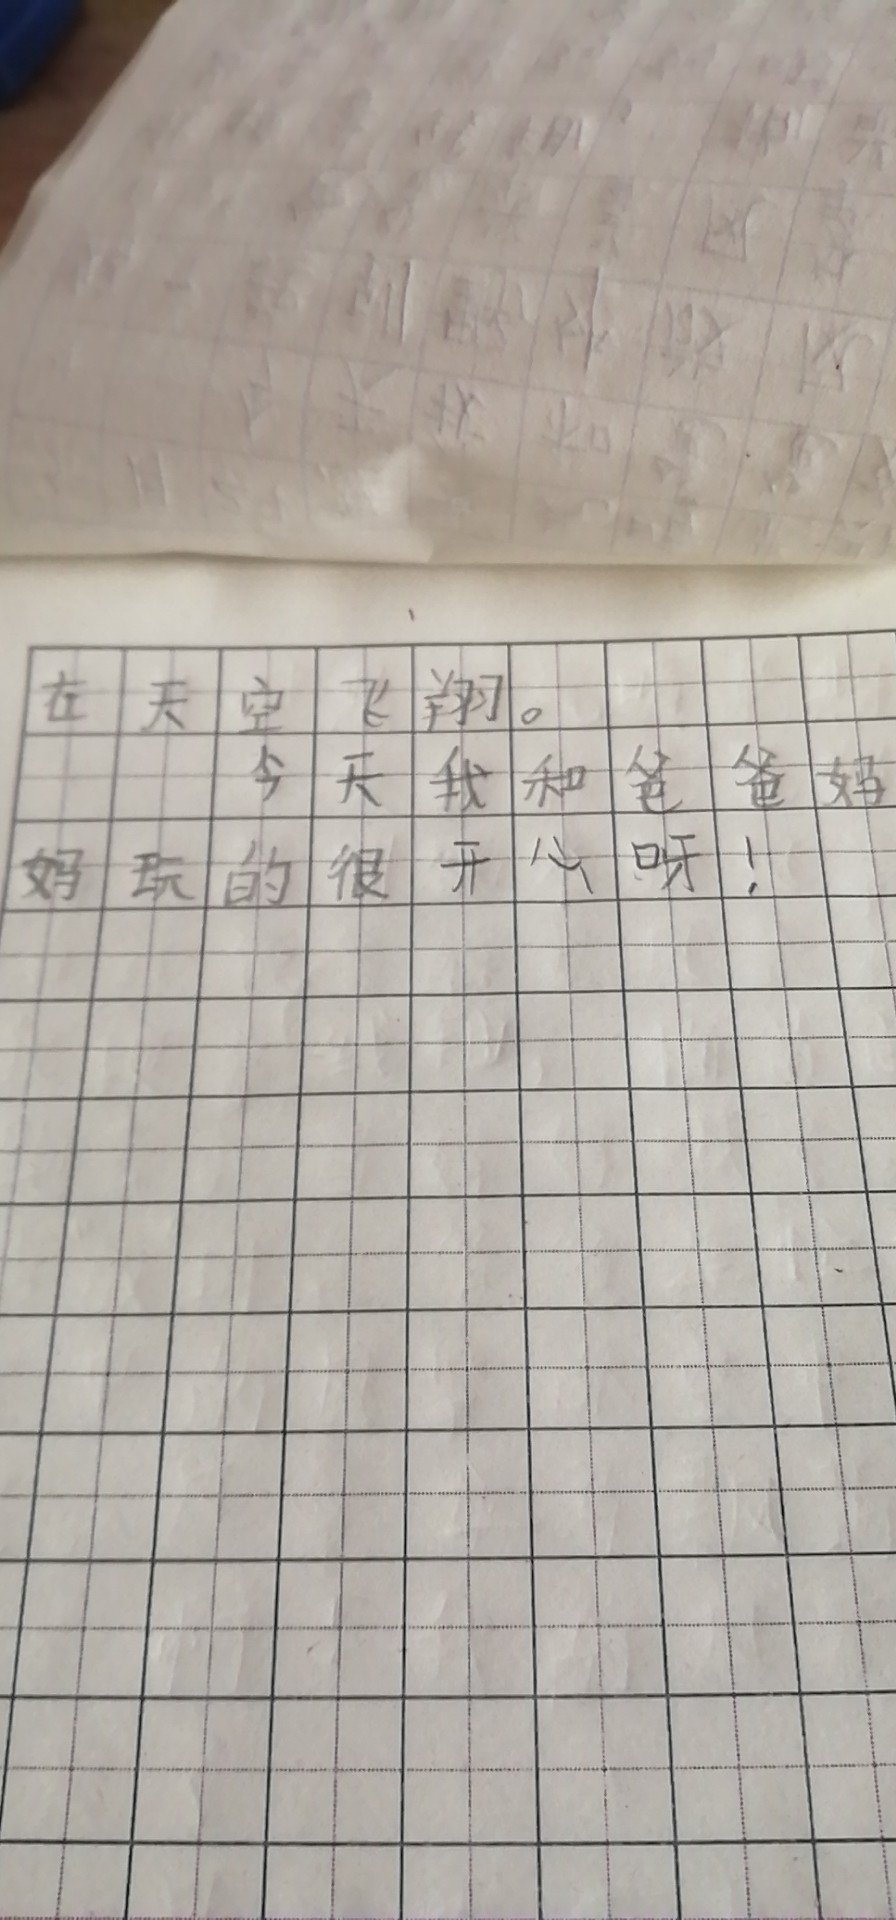 在天空飞翔。
今天我和爸爸妈
妈玩的很开心呀！